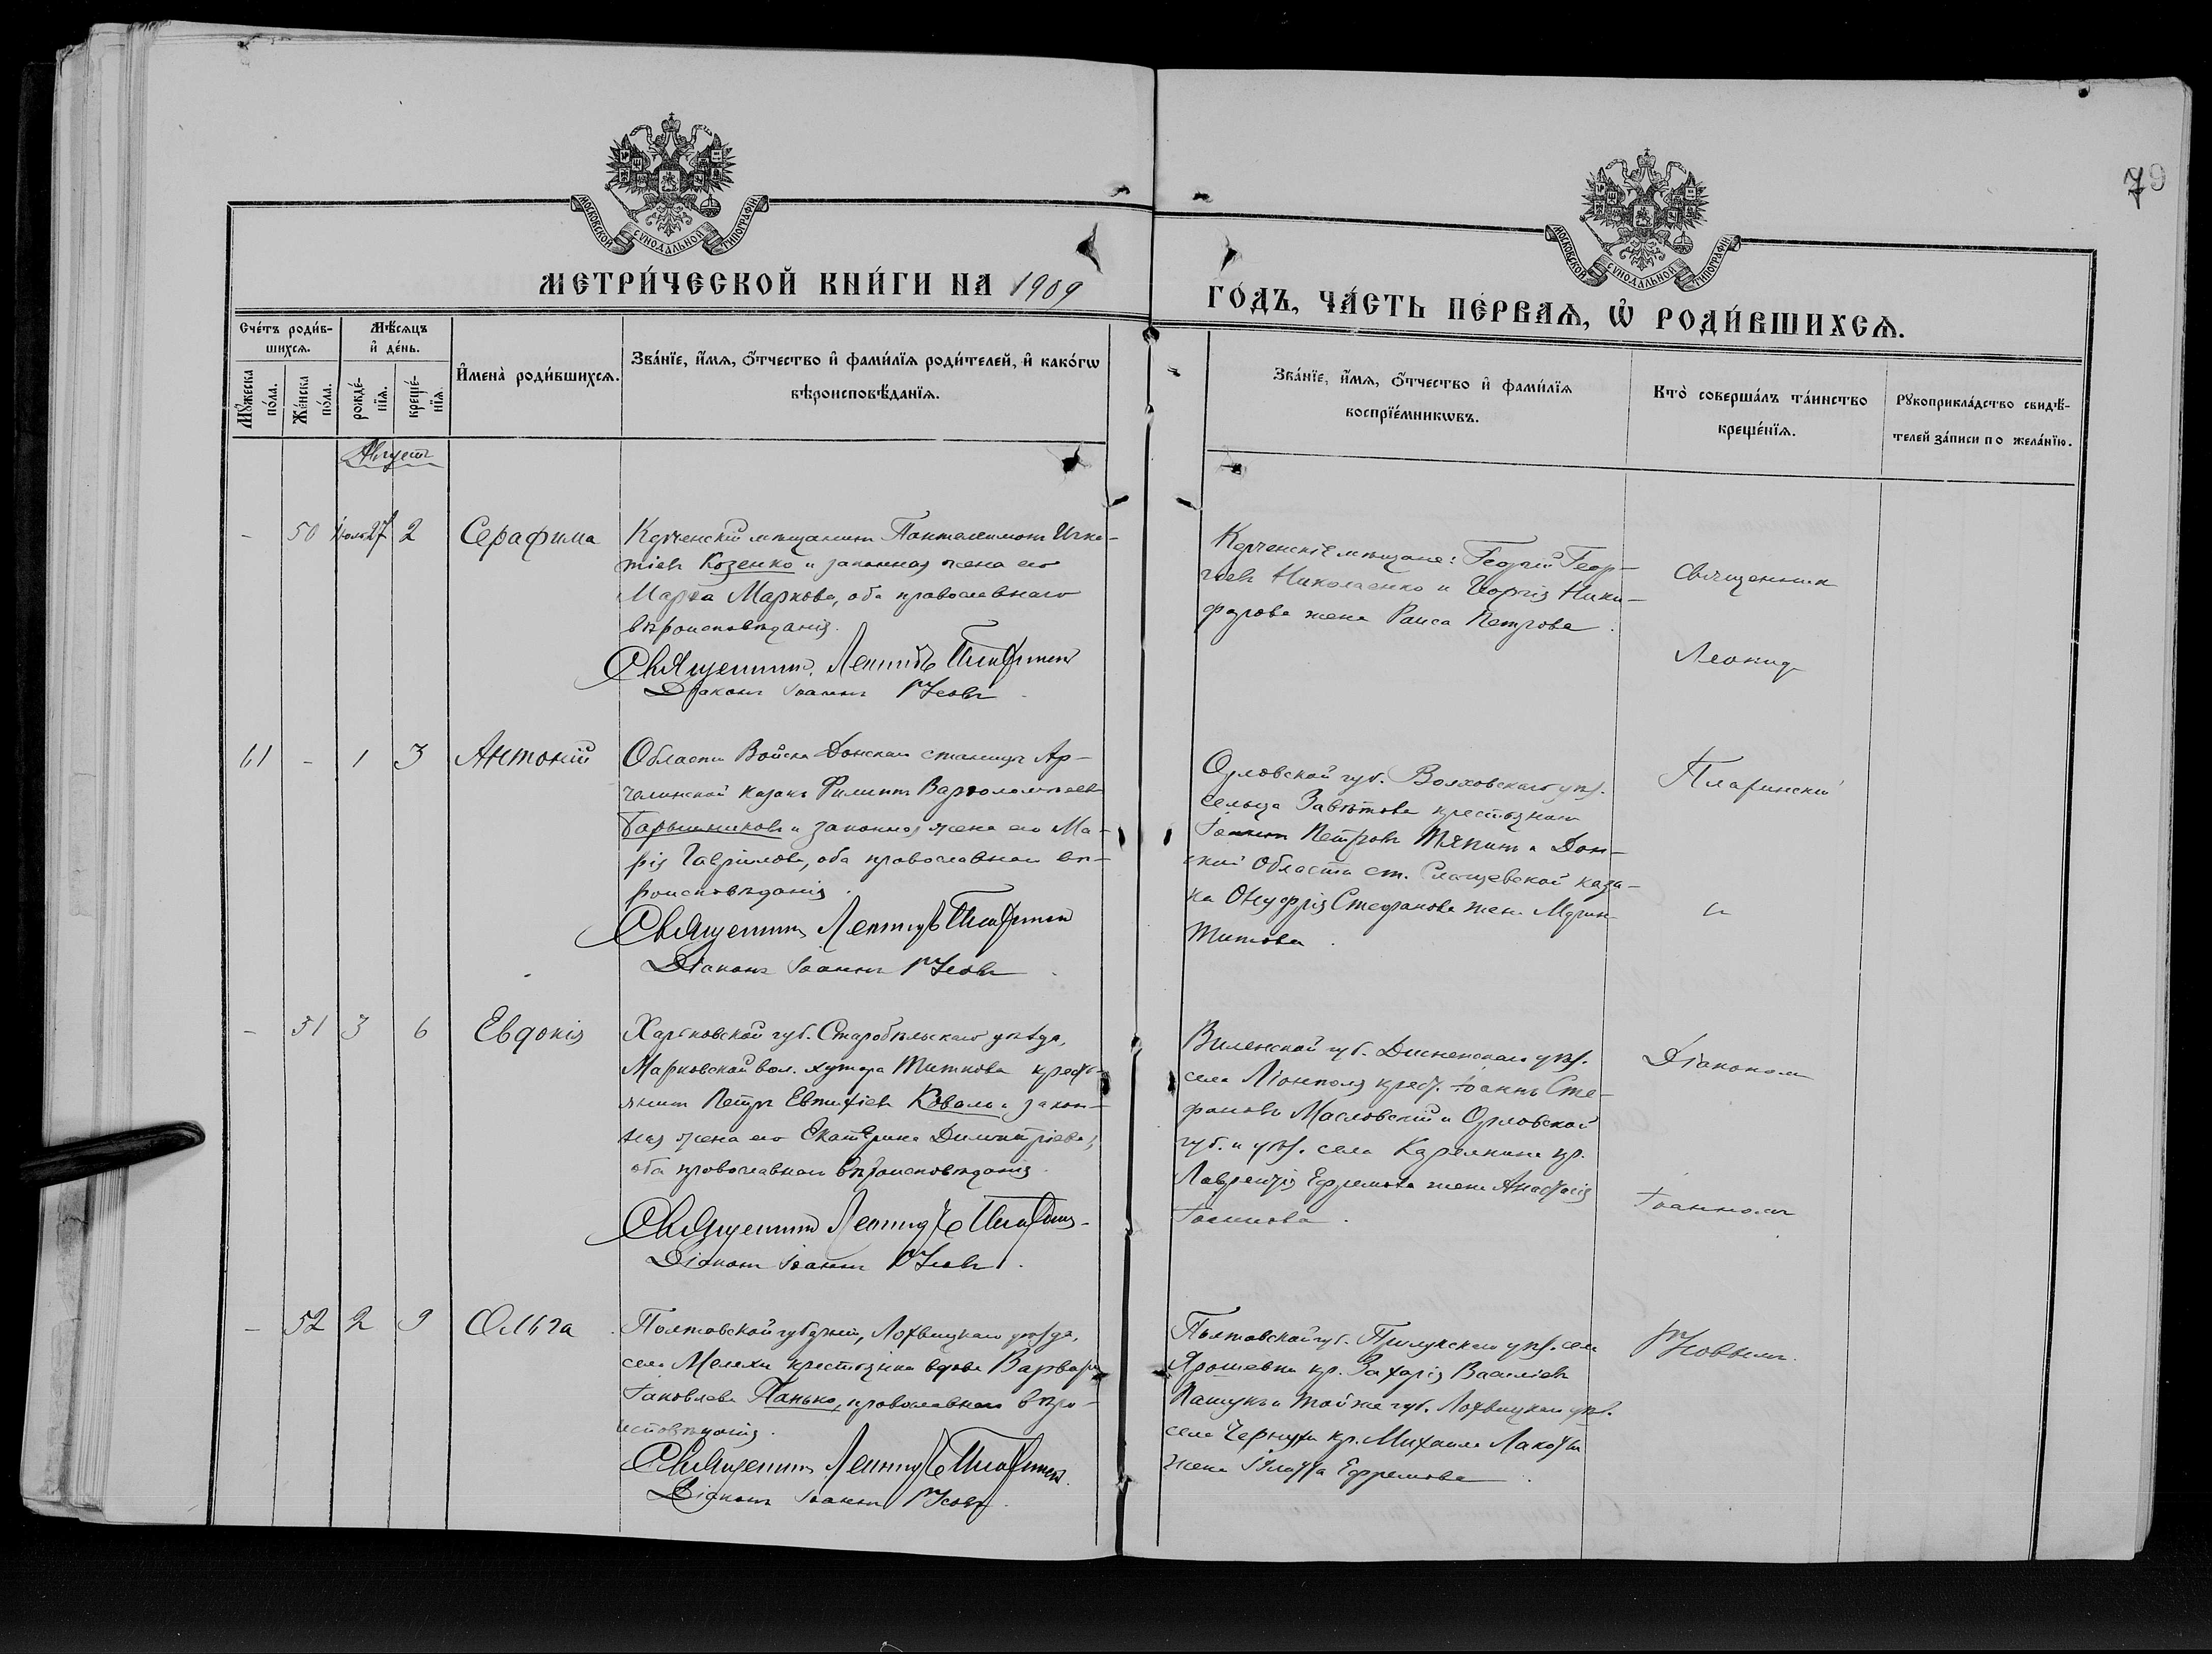 79
МОСКОВСКОЙ СУНОДАЛЬНОЙ ТИПОГРАФІИ
МОСКОВСКОЙ СУНОДАЛЬНОЙ ТИПОГРАФІИ
МЕТРИ́ЧЕСКОЙ КНИ́ГИ НА 1909
ГО́ДЪ, ЧА́СТЬ ПЕ́РВАѦ, Ѡ҆ РОДИ́ВШИХСѦ.
Сче́тъ роди́в-
шихсѧ.
Мꙋ́жеска
по́ла.
Же́нска
по́ла.
Мѣ́сѧцъ
и҆ де́нь.
рожде́-
нїѧ.
креще́-
нїѧ.
И҆мена̀ роди́вшихсѧ.
Зва́нїе, и҆́мѧ, ѻ҆́тчество и҆ фами́лїѧ роди́телей, и҆ како́гѡ
вѣроисповѣ́данїѧ.
Зва́нїе, и҆́мѧ, ѻ҆́тчество и҆ фами́лїѧ
воспрїе́мникѡвъ.
Кто̀ соверша́лъ та́инство
креще́нїѧ.
Рꙋкоприкла́дство свидѣ́-
телей за́писи по жела́нїю.
Августъ
- 50 Іюль 27 2 Серафима
Керченскій мѣщанинъ Пантелеимонъ Игна-
тіевъ Козенко и законная жена его
Марѳа Маркова, оба православнаго
вѣроисповѣданія.
Священникъ Леонидъ
Діаконъ Іоаннъ Усовъ
Керченскіе мѣщане: Георгій Геор-
гіевъ Николаенко и Георгія Ники-
форова жена Раиса Петрова.
Священникъ
Леонидъ
61 - 1 3 Антоній
Области Войска Донскаго станицы Ар-
чадинской казакъ Филиппъ Варѳоломѣевъ
Барышниковъ и законная жена его Ма-
рія Гавріилова, оба православнаго вѣ-
роисповѣданія.
Священникъ Леонидъ
Діаконъ Іоаннъ Усовъ
Орловской губ. Волховскаго уѣз.
сельца крестьянинъ
Іоаннъ Петровъ и Дон-
ской Области ст. Слащевской каза-
ка Онуфрія Стефанова жена
Титова.
и
- 51 3 6 Евдокія
Харьковской губ. Старобѣльскаго уѣзда,
Марковской вол. хутора Титкова кресть-
янинъ Петръ Евтихіевъ Коваль и закон-
ная жена его Екатерина Димитріева,
оба православнаго вѣроисповѣданія.
Священникъ Леонидъ
Діаконъ Іоаннъ Усовъ.
Виленской губ. Дисненскаго уѣз.
села Ліонполя крест. Іоаннъ Сте-
фановъ Масловскій и Орловской
губ. и уѣз. села кр.
Лаврентія Ефремова жена Анастасія
Іоаннова.
Діакономъ
Іоанномъ
- 52 2 9 Ольга
Полтавской губерніи, Лохвицкаго уѣзда,
села Мелехи крестьянка вдова Варвара
Іаковлева Панько, православнаго вѣро-
исповѣданія.
Священникъ Леонидъ
Діаконъ Іоаннъ Усовъ.
Полтавской губ. Прилукскаго уѣз. села
Ярошевки кр. Захарія Василіевъ
и той же губ. Лохвицкаго уѣз.
села Чернухи кр. Михаила
жена Ефремова.
Усовымъ.